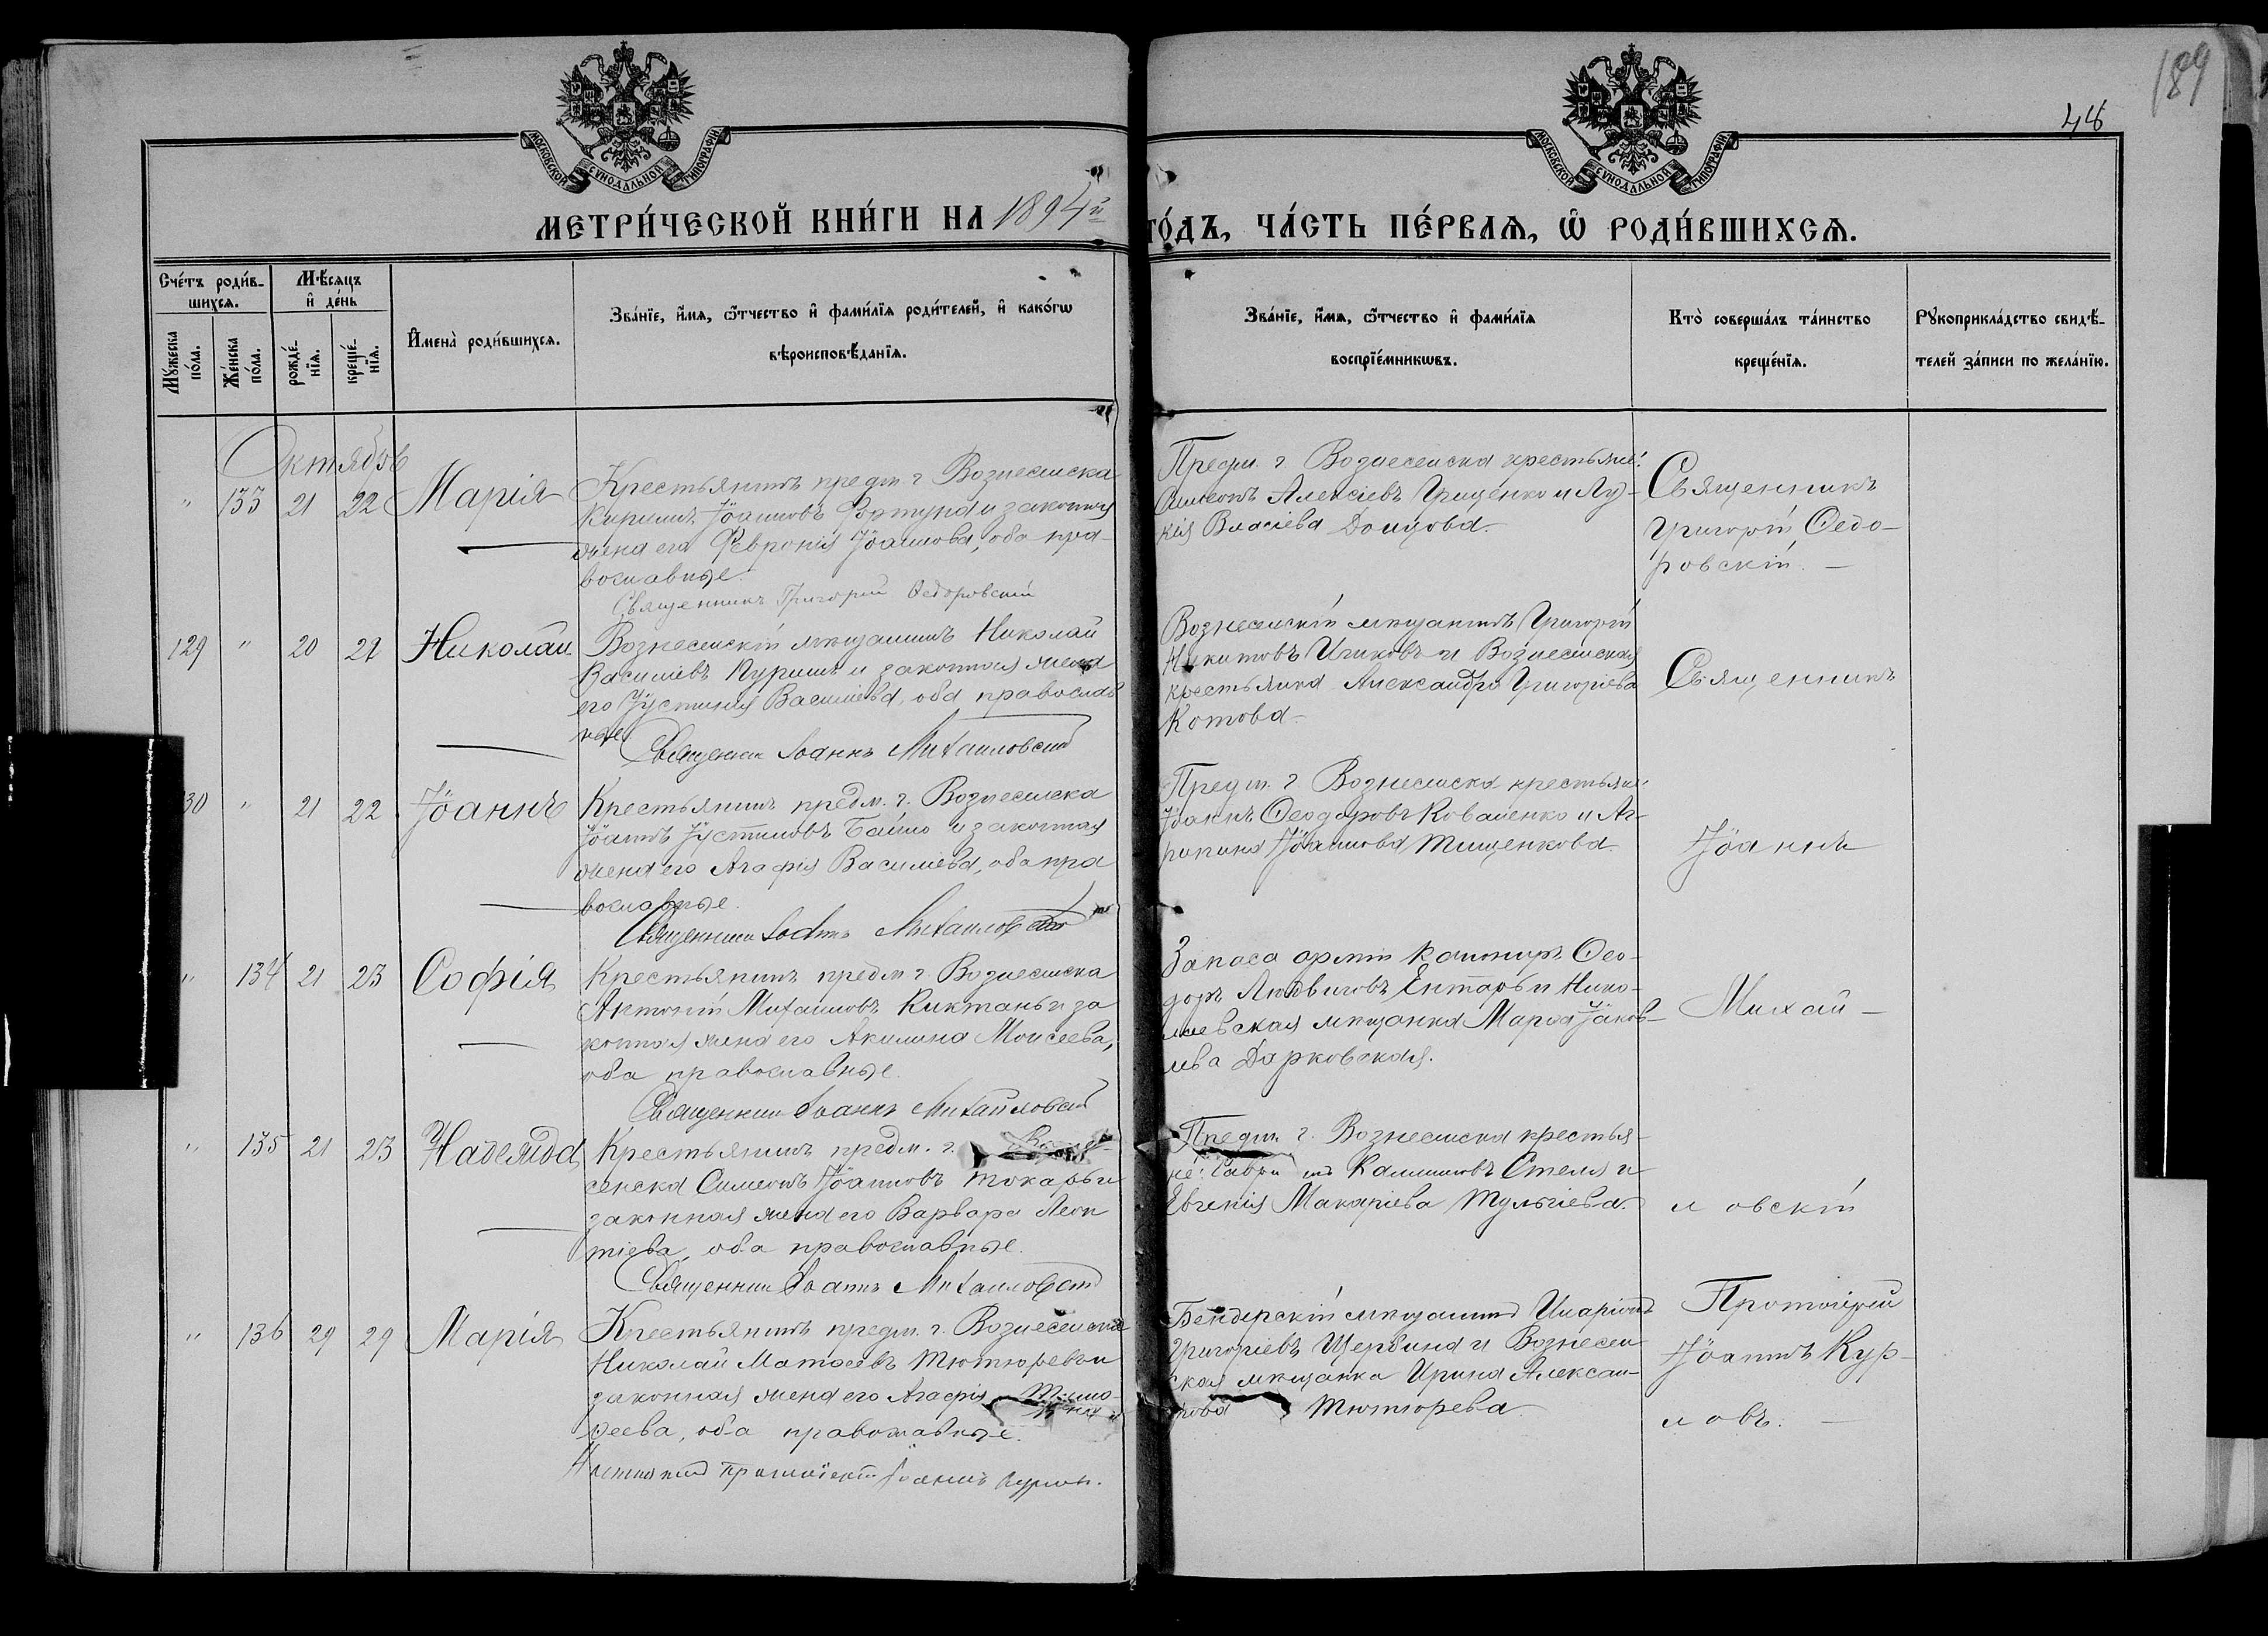 189
46
МОСКОВСКОЙ СѴНОДАЛЬНОЙ ТИПОГРАФІИ
МОСКОВСКОЙ СѴНОДАЛЬНОЙ ТИПОГРАФІИ
МЕТРИ́ЧЕСКОЙ КНИ́ГИ НА 1894й
ГО́ДЪ, ЧА́СТЬ ПЕ́РВАЯ, Ѡ҆ РОДИ́ВШИХСЯ.
Сче́тъ роди́в-
шихся.
Мꙋ́жеска по́ла.
Же́нска по́ла.
Мѣ́сяцъ и҆ де́нь
рожде́-
нїя.
креще́-
нїя.
И҆мена̀ роди́вшихся.
Зва́нїе, и҆́мя, ѻ҆́тчество и҆ фами́лїя роди́телей, и҆ како́гѡ
вѣроисповѣ́данїя.
Зва́нїе, и҆́мя, ѻ҆́тчество и҆ фами́лїя
воспрїе́мникѡвъ.
Кто̀ соверша́лъ та́инство
креще́нїя.
Рꙋкоприкла́дство свидѣ́-
телей за́писи по жела́нїю.
Октябрь
" 133 21 22 Марія
Крестьянинъ предм. г. Вознесенска
Кириллъ Іоанновъ Фортуна и законная
жена его Февронія Іоаннова, оба пра-
вославные.
Священникъ Григорій Ѳедоровскій
Предм. г. Вознесенска крестьяне:
Симеонъ Алексіевъ Грищенко и Лу-
кія Власіева Донцова.
Священникъ
Григорій Ѳедо-
ровскій. —
129 " 20 22 Николай
Вознесенскій мѣщанинъ Николай
Василіевъ Куришъ и законная жена
его Іустинія Василіева, оба православ
ные
Священник Іоаннъ Михайловскій
Вознесенскій мѣщанинъ Григорій
Никитовъ и Вознесенская
крестьянка Александра Григоріева
Котова —
Священникъ
130 " 21 22 Іоаннъ
Крестьянинъ предм. г. Вознесенска
Іоаннъ Іустиновъ и законная
жена его Агафія Василіева, оба пра
вославные.
Священник Іоаннъ Михайловскій
Предм. г. Вознесенска крестьяне:
Іоаннъ Ѳеодоровъ Коваленко и Аг-
рипина Іоаннова Тищенкова.
Іоаннъ
" 134 21 23 Софія
Крестьянинъ предм. г. Вознесенска
Антоній Михаиловъ Киктань и за
конная жена его Акилина Моисеева,
оба православные.
Священник Іоаннъ Михайловскій
Запаса арміи Ѳео-
доръ Людвиговъ и Нико-
лаевская мѣщанка Марѳа Іаков-
лева Дарковская.
Михай —
" 135 21 23 Надежда
Крестьянинъ предм. г. Возне-
сенска Симеонъ Іоанновъ Токарь и
законная жена его Варвара Леон
тіева, оба православные.
Священник Іоаннъ Михайловскій
Предм. г. Вознесенска крестья-
не: Калинниковъ Стеля и
Евгенія Макаріева Тульчіева.
ловскій
" 136 29 29 Марія
Крестьянинъ предм. г. Вознесенска
Николай Матѳеевъ Тютюревъ и
законная жена его Агафія Тимо-
ѳеева, оба православные.
Протоіерей Іоаннъ Курловъ.
Бендерскій мѣщанинъ Иларіонъ
Григоріевъ Щербина и Вознесен
ская мѣщанка Ирина Алексан-
рова Тютюрева.
Протоіерей
Іоаннъ Кур-
ловъ. —